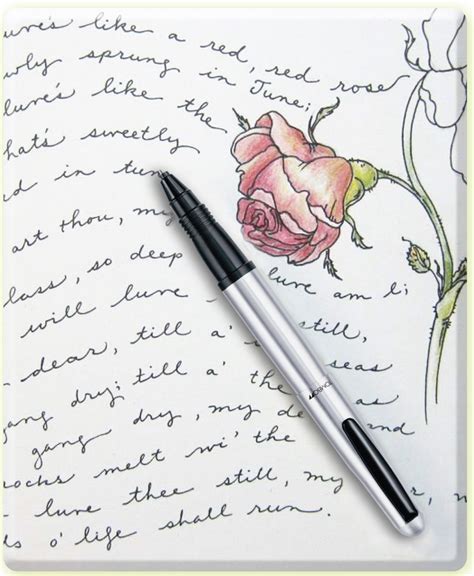 uve's like a red, red rose
wly sprung in June;
luve's like the
hat's sweetly
d in tun
art thou, my
lass, so deep luve am i
will luve
dear, till a' still,
gang dry; till a' the seas
gang dry, my de and
rocks melt wi' the
luve thee still, my
ds o' life shall run.